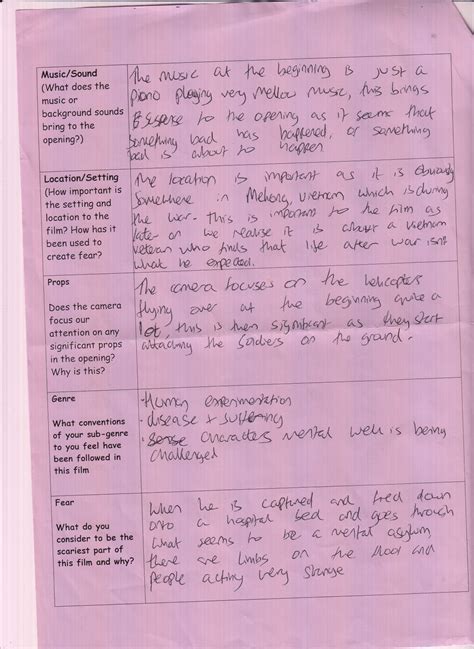 Music/Sound
(What does the
music or
background sounds
bring to the
opening?)
The music at the beginning is just a
piano playing very mellow music, this brings
suspense to the opening as it seems that
something bad has happened, or something
bad is about to happen
Location/Setting
(How important is
the setting and
location to the
film? How has it
been used to
create fear?)
The location is important as it is obviously
somewhere in Mehong, vietnam which is during
the war. this is important to the film as
later on we realise it is about a vietnam
veteran who finds that life after war isnt
what he expected.
Props
Does the camera
focus our
attention on any
significant props
in the opening?
Why is this?
The camera focuses on the helicopters
flying over at the beginning quite a
lot, this is then significant as they start
attacking the soldiers on the ground.
Genre
What conventions
of your sub-genre
to you feel have
been followed in
this film
· Human experimentation
· disease & suffering
· characters mental well is being
challenged
Fear
What do you
consider to be the
scariest part of
this film and why?
When he is captured and tied down
onto a hospital bed and goes through
what seems to be a mental asylum
there are limbs on the floor and
people acting very strange